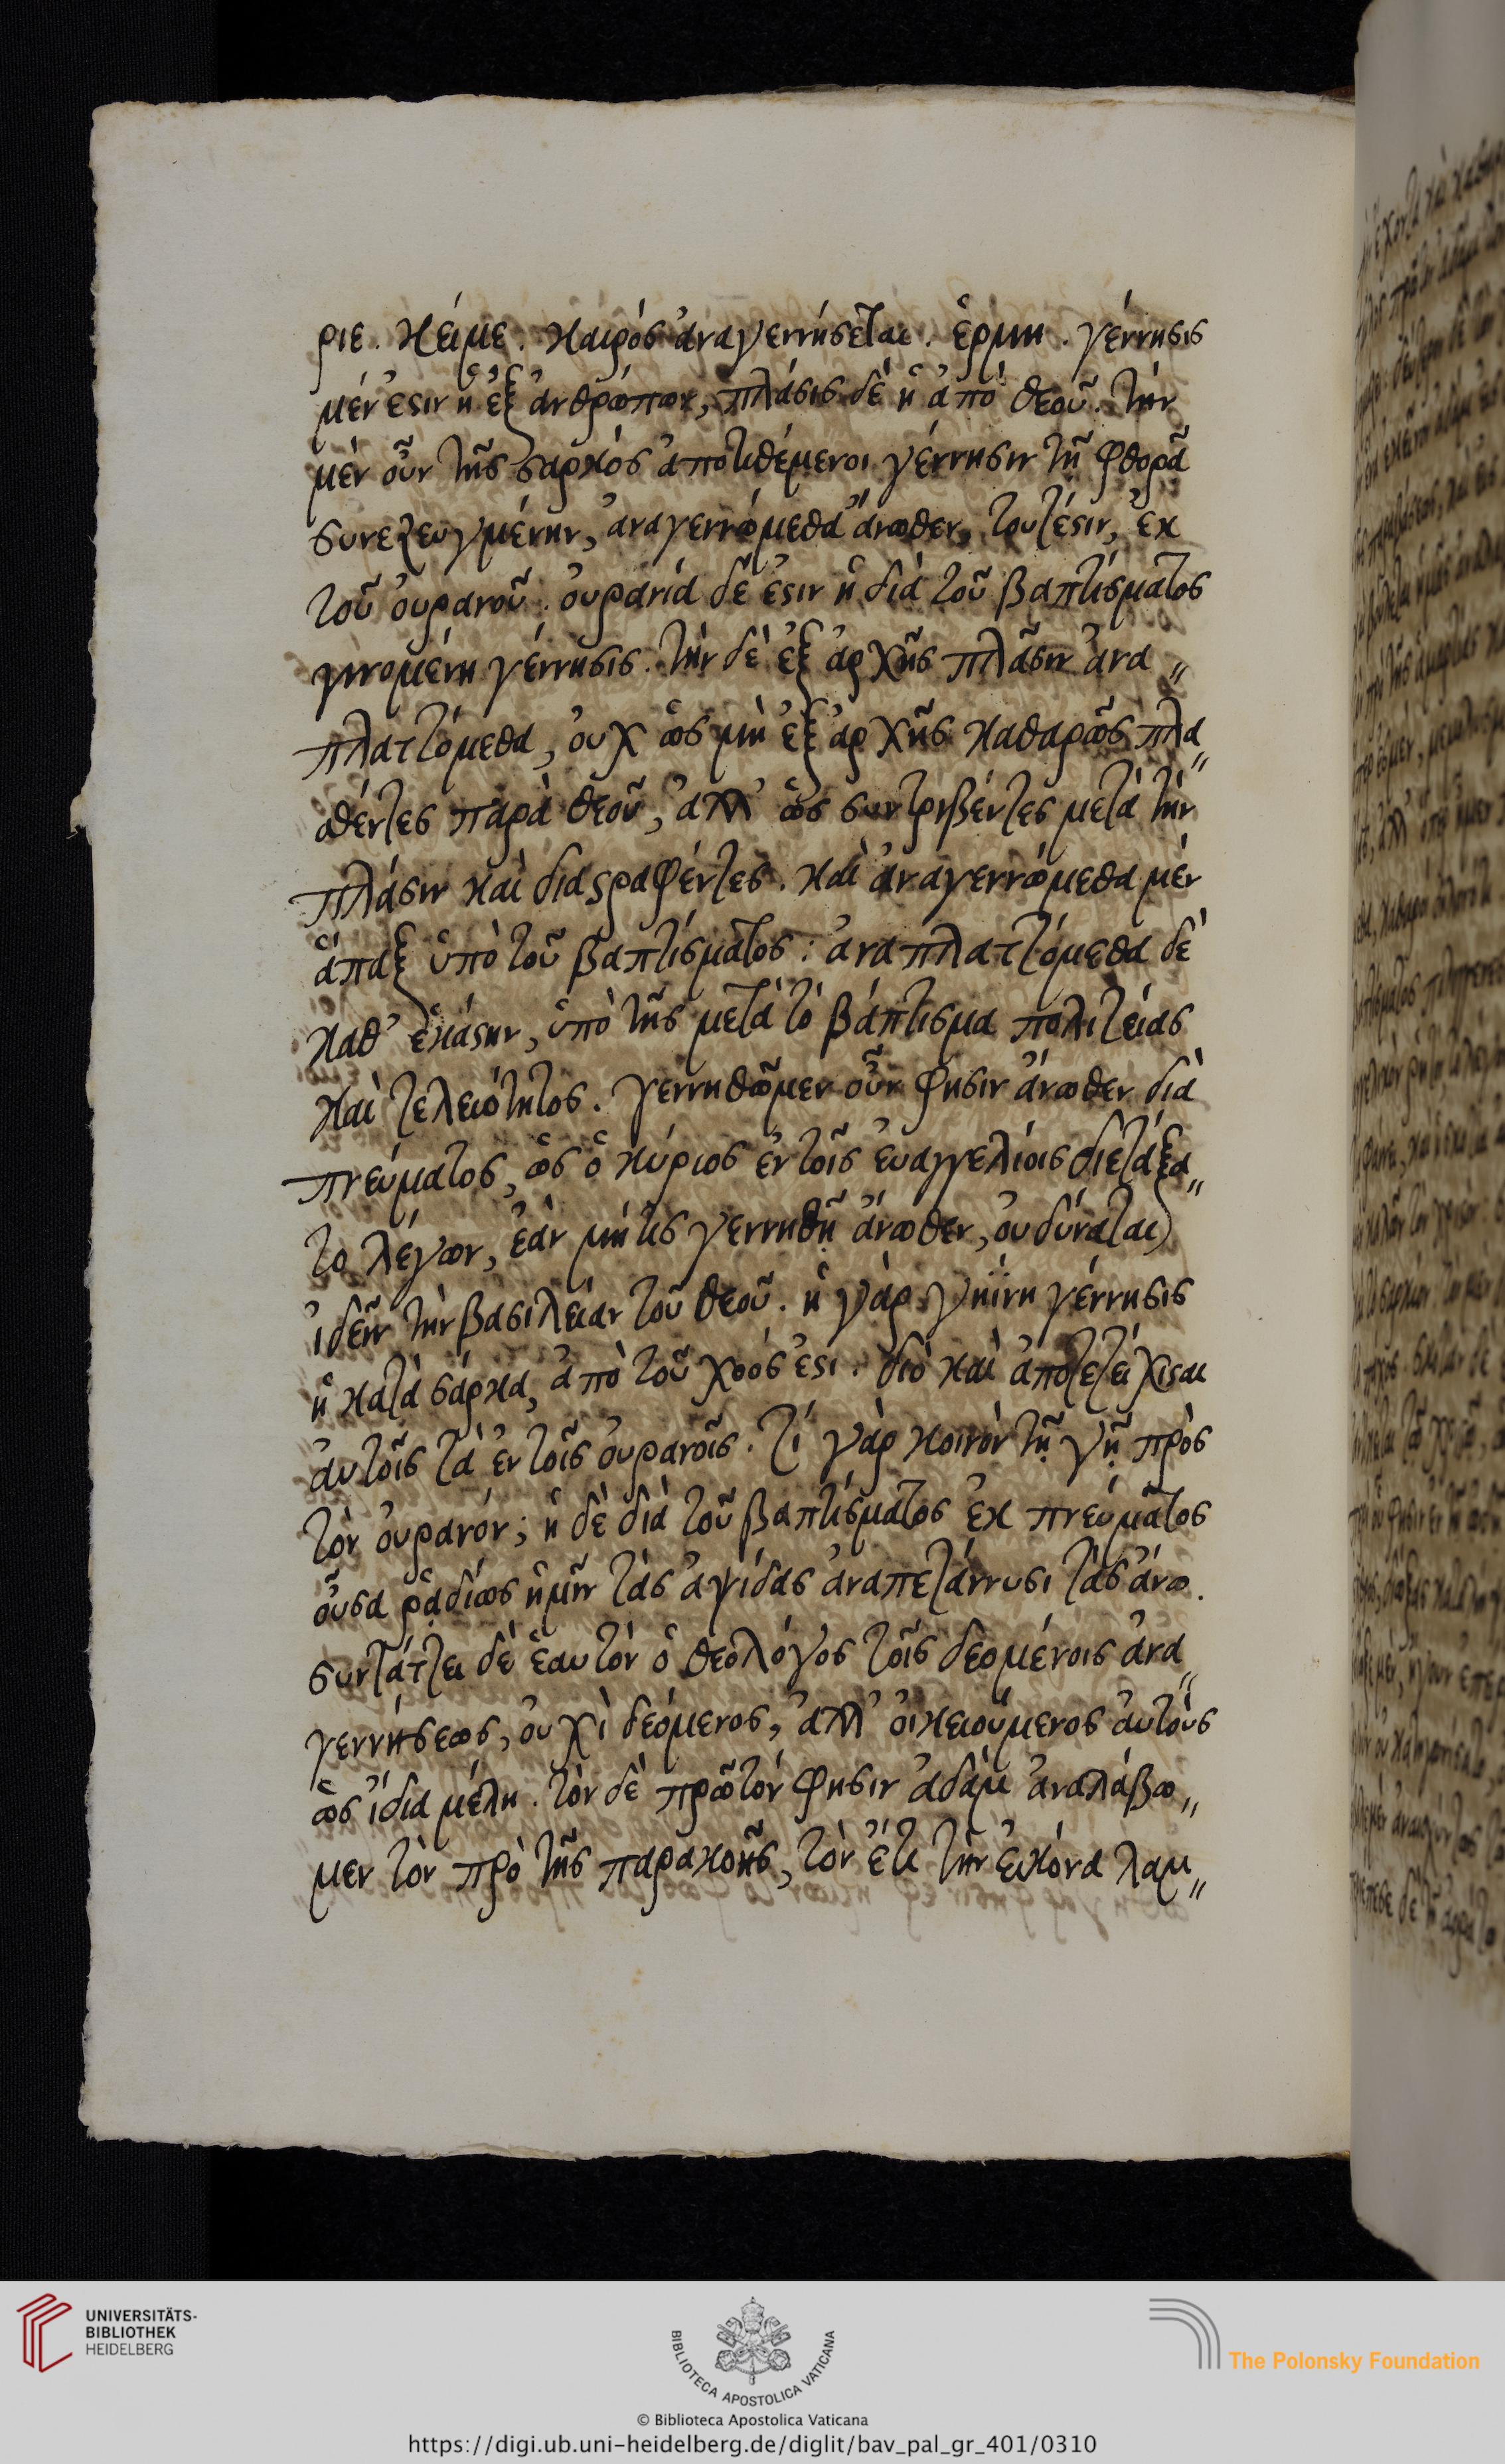 ριε. Κείμε. Καιρός ἀναγεννήσεται. ἑρμη. γέννησις
μέν ἐστιν ἡ ἐξ ἀνθρώπων, πλάσις δὲ ἡ ἀπὸ θεοῦ. τὴν
μὲν οὖν τῆς σαρκὸς ἀποτιθέμενοι γέννησιν τῇ φθορᾷ
συνεζευγμένην, ἀναγεννώμεθα ἄνωθεν, τουτέστιν, ἐκ
τοῦ οὐρανοῦ. οὐρανία δέ ἐστιν ἡ διὰ τοῦ βαπτίσματος
γινομένη γέννησις. τὴν δὲ ἐξ ἀρχῆς πλάσιν ἀνα〃
πλαττόμεθα, οὐχ ὡς μὴ ἐξ ἀρχῆς καθαρῶς πλα〃
σθέντες παρὰ θεοῦ, ἀλλ' ὡς συντριβέντες μετὰ τὴν
πλάσιν καὶ διαστραφέντες. καὶ ἀναγεννώμεθα μὲν
ἅπαξ ὑπὸ τοῦ βαπτίσματος: ἀναπλαττόμεθα δὲ
καθ' ἑκάστην, ὑπὸ τῆς μετὰ τὸ βάπτισμα πολιτείας
καὶ τελειότητος. γεννηθῶμεν οὖν φησιν ἄνωθεν διὰ
πνεύματος, ὡς ὁ κύριος ἐν τοῖς εὐαγγελίοις διετάξα〃
το λέγων, ἐὰν μή τις γεννηθῇ ἄνωθεν, οὐ δύναται
ἰδεῖν τὴν βασιλείαν τοῦ θεοῦ. ἡ γὰρ γηΐνη γέννησις
ἡ κατὰ σάρκα, ἀπὸ τοῦ χοός ἐστι. διὸ καὶ ἀποτετείχισται
αὐτοῖς τὰ ἐν τοῖς οὐρανοῖς. τί γὰρ κοινὸν τῇ γῇ πρὸς
τὸν οὐρανόν; ἡ δὲ διὰ τοῦ βαπτίσματος ἐκ πνεύματος
οὖσα ῥᾳδίως ἡμῖν τὰς ἁψίδας ἀναπετάννυσι τὰς ἄνω.
συντάττει δὲ ἑαυτὸν ὁ θεολόγος τοῖς δεομένοις ἀνα〃
γεννήσεως, οὐχὶ δεόμενος, ἀλλ' οἰκειούμενος αὐτοὺς
ὡς ἴδια μέλη. τὸν δὲ πρῶτόν φησιν ἀδὰμ ἀναλάβω〃
μεν τὸν πρὸ τῆς παρακοῆς, τὸν ἔτι τὴν εἰκόνα λαμ〃
UNIVERSITÄTS-
BIBLIOTHEK
HEIDELBERG
BIBLIOTECA APOSTOLICA VATICANA
The Polonsky Foundation
© Biblioteca Apostolica Vaticana
https://digi.ub.uni-heidelberg.de/diglit/bav_pal_gr_401/0310